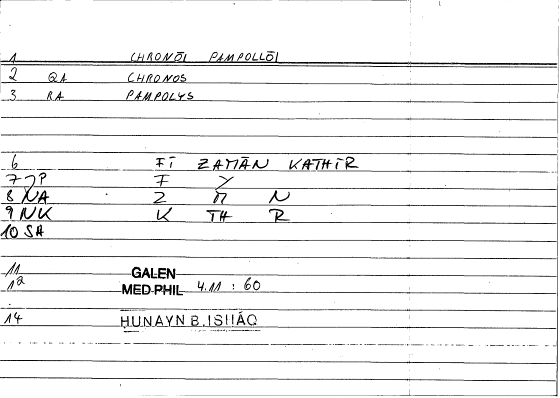 1 CHRONŌI PAMPOLLŌI
2 QA CHRONOS
3 RA PAMPOLYS
6 FĪ ZAMĀN KATHĪR
7 JP F Y
8 NA Z M N
9 NK K TH R
10 SA
11 GALEN
12 MED-PHIL 4.11 : 60
14 HUNAYN B. ISḤĀQ